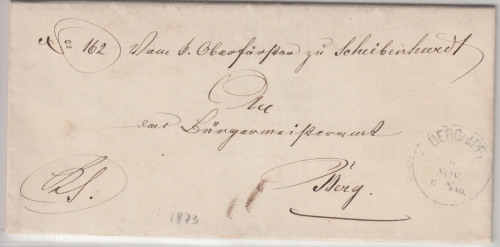 No 162 Vom k. Oberförster zu Scheibenhardt
An
das Bürgermeisteramt
Berg.
RS.
BERG (PF
NOV.
1873